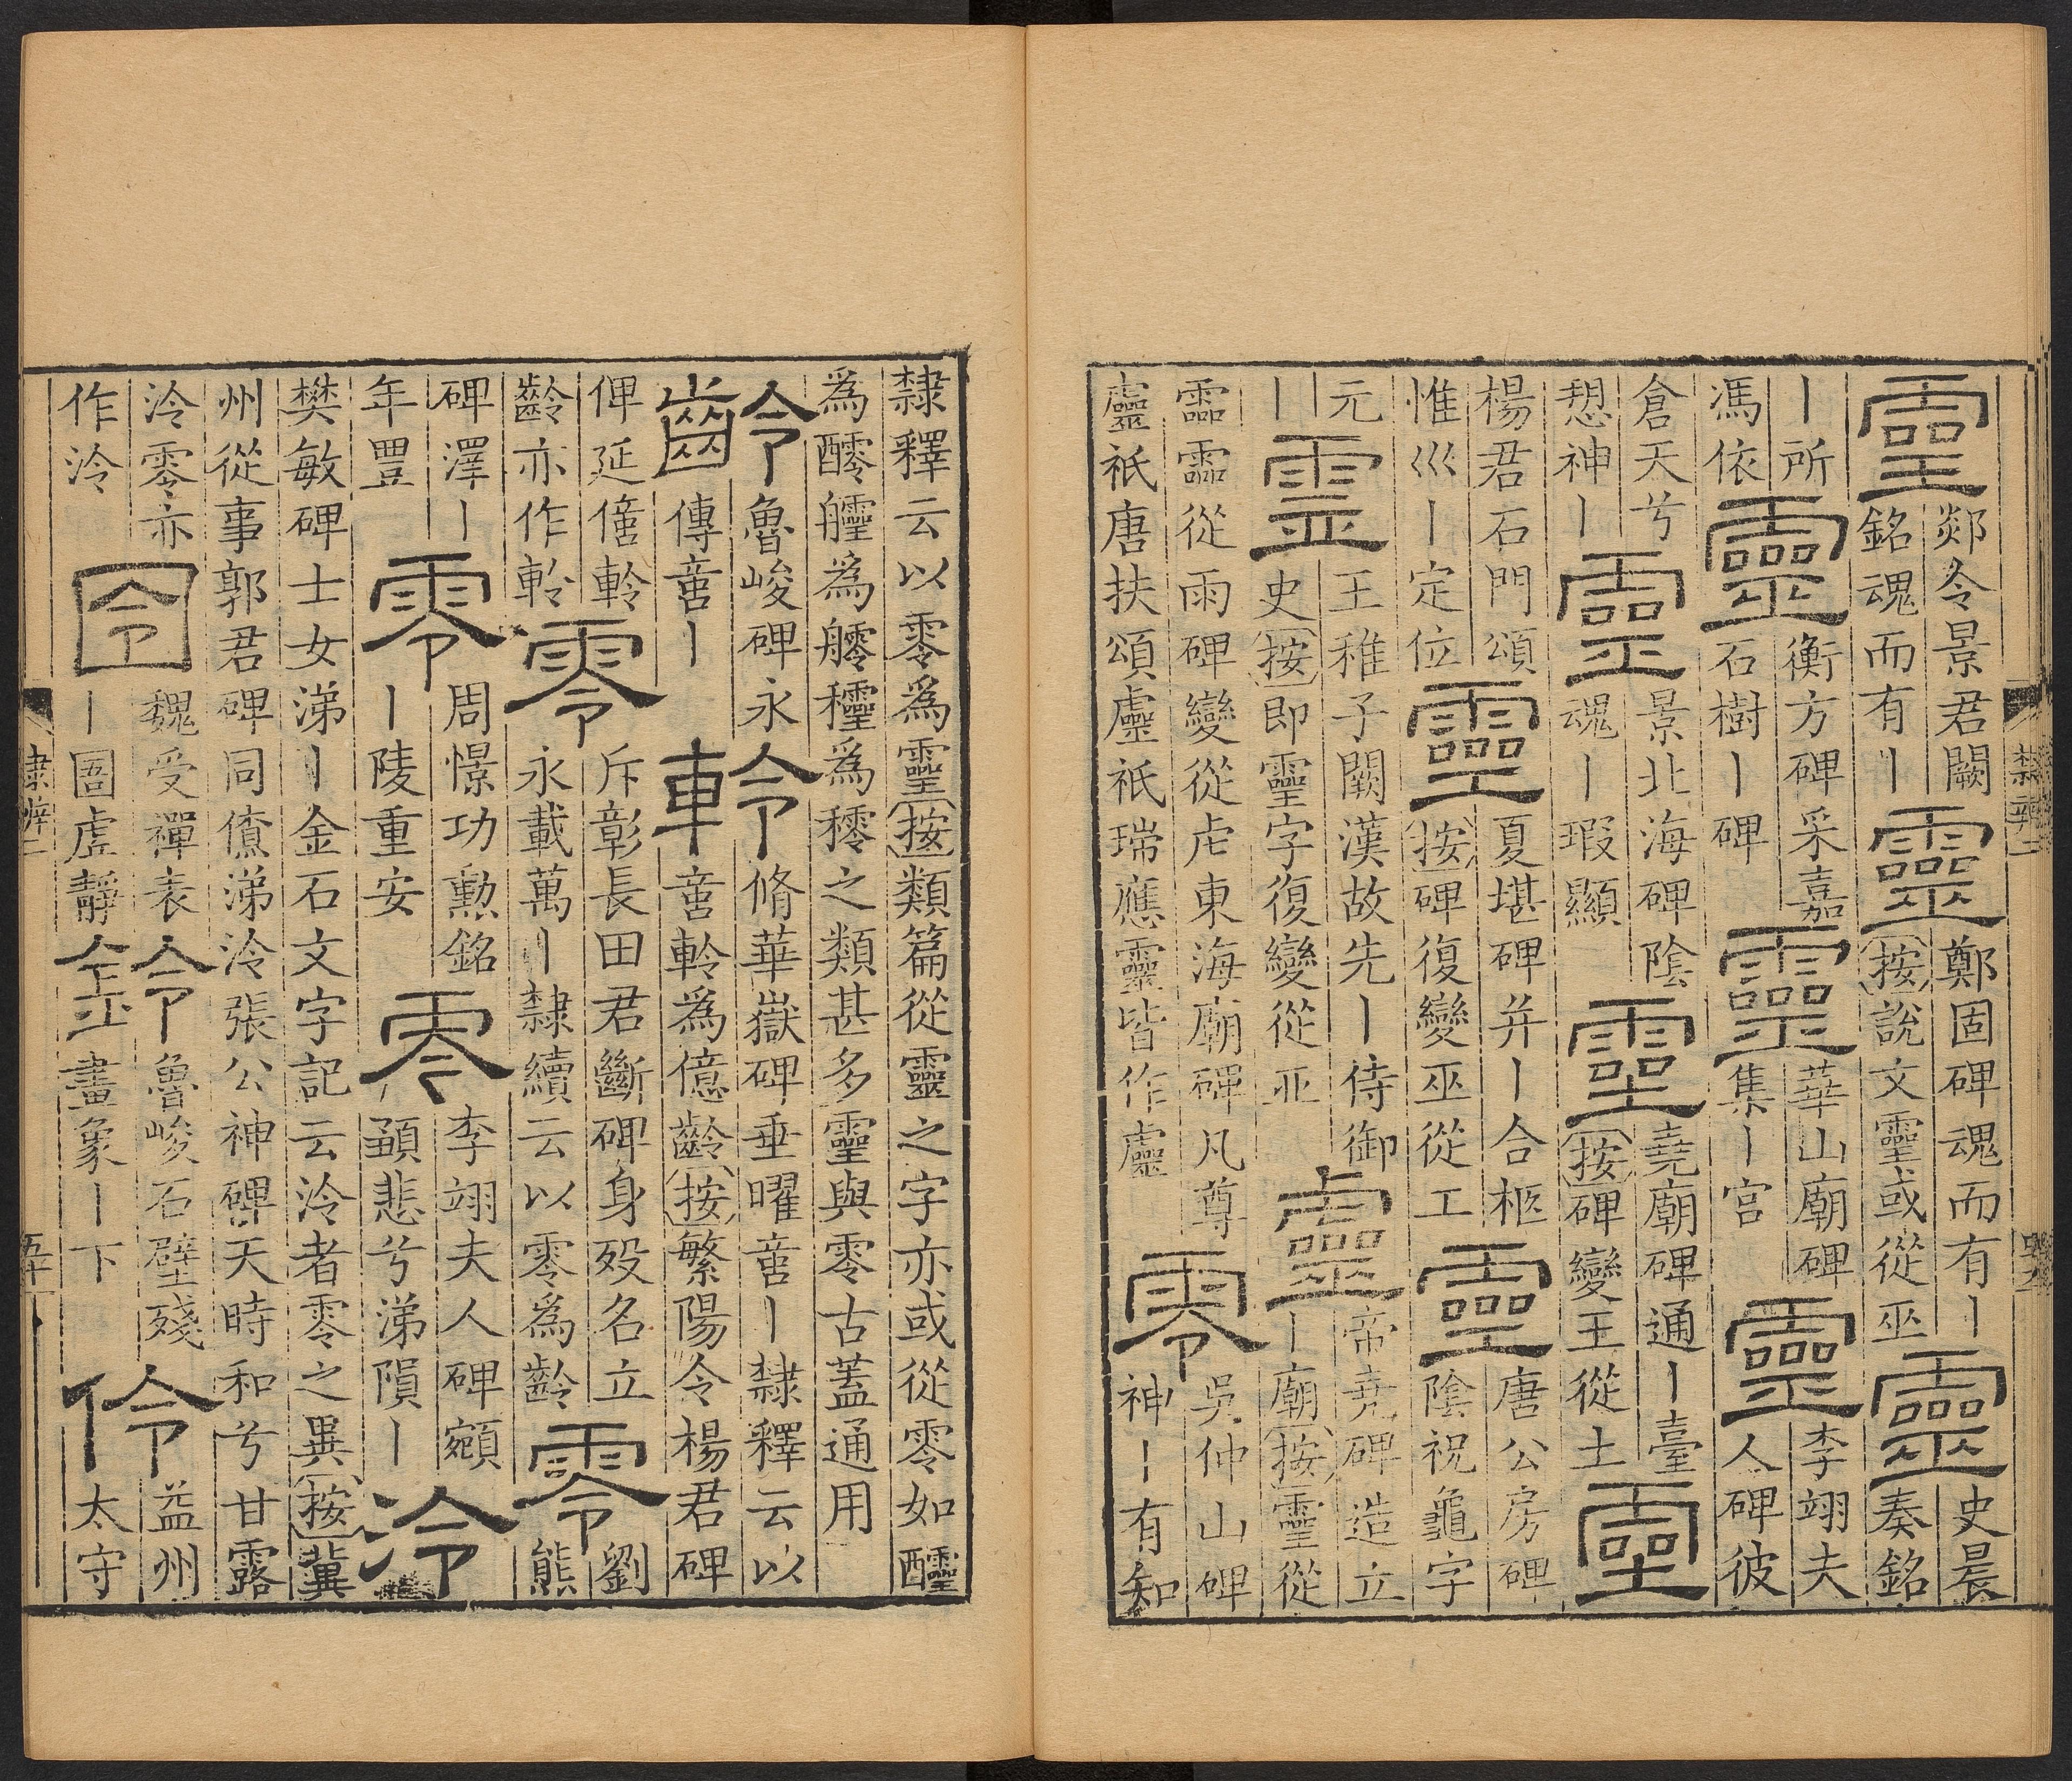 靈
郯令景君闕
銘魂而有丨
靈
鄭固碑魂而有丨
按說文靈或從巫
靈
史晨
奏銘
丨所
馮依
靈
衡方碑采嘉
石樹丨碑
靈
華山廟碑
集丨宮
靈
李翊夫
人碑彼
倉天兮
憩神丨
靈
景北海碑陰
魂丨瑕顯
靈
堯廟碑通丨臺
按碑變王從土
靈
楊君石門頌
惟巛丨定位
靈
夏堪碑并丨合柩
按碑復變巫從工
靈
唐公房碑
陰祝龜字
元
丨
靈
王稚子闕漢故先丨侍御
史按即靈字復變從亚
靈
帝堯碑造立
丨廟按靈從
從雨碑變從虍東海廟碑凡尊
靈祇唐扶頌靈祇瑞應靈皆作靈
零
吳仲山碑
神丨有知
隸辨二
隸釋云以零為靈按類篇從靈之字亦或從零如醽
為 為 為 之類甚多靈與零古蓋通用
齡
魯峻碑永
傳啻丨
軨
脩華嶽碑垂曜啻丨隸釋云以
啻軨為億齡按繁陽令楊君碑
俾延偣軨
齡亦作軨
零
斥彰長田君斷碑身歿名立
永載萬丨隸續云以零為齡
零
劉
熊
碑澤丨
年豐
零
周憬功勳銘
丨陵重安
零
李翊夫人碑
悲兮涕隕丨
泠
樊敏碑士女涕丨金石文字記云泠者零之異按冀
州從事郭君碑同儐涕泠張公神碑天時和兮甘露
泠零亦
作泠
囹
魏受禪表
丨圄虛靜
鈴
魯峻石壁殘
畫象丨下
伶
益州
太守
隸辨二